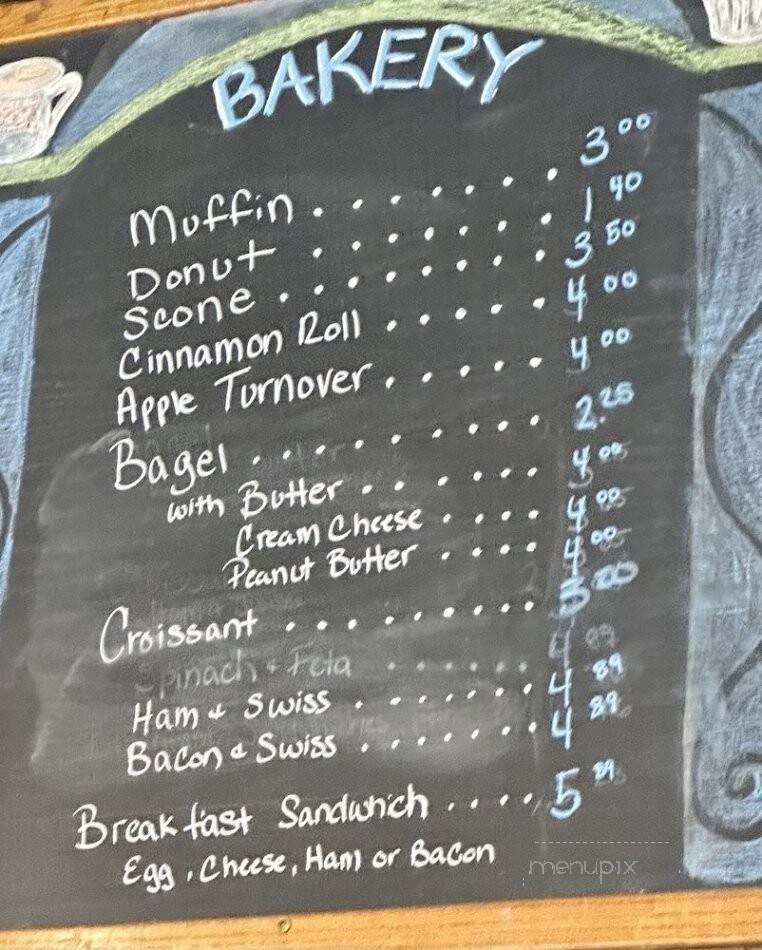 BAKERY
Muffin . . . . . . . 3 00
Donut . . . . . . . 1 40
Scone . . . . . . . . 3 50
Cinnamon Roll . . . . . 4 00
Apple Turnover . . . . . 4 00
Bagel . . . . . . . . . 2.25
with Butter . . . . . . 4 00
Cream Cheese . . . . 4 00
Peanut Butter . . . . 4 00
Croissant . . . . . . . . .
Spinach & Feta . . . . . .
Ham & Swiss . . . . . . 4 89
Bacon & Swiss . . . . . . . 4 89
Breakfast Sandwhich . . . . 5 89
Egg, Cheese, Ham or Bacon
menupix